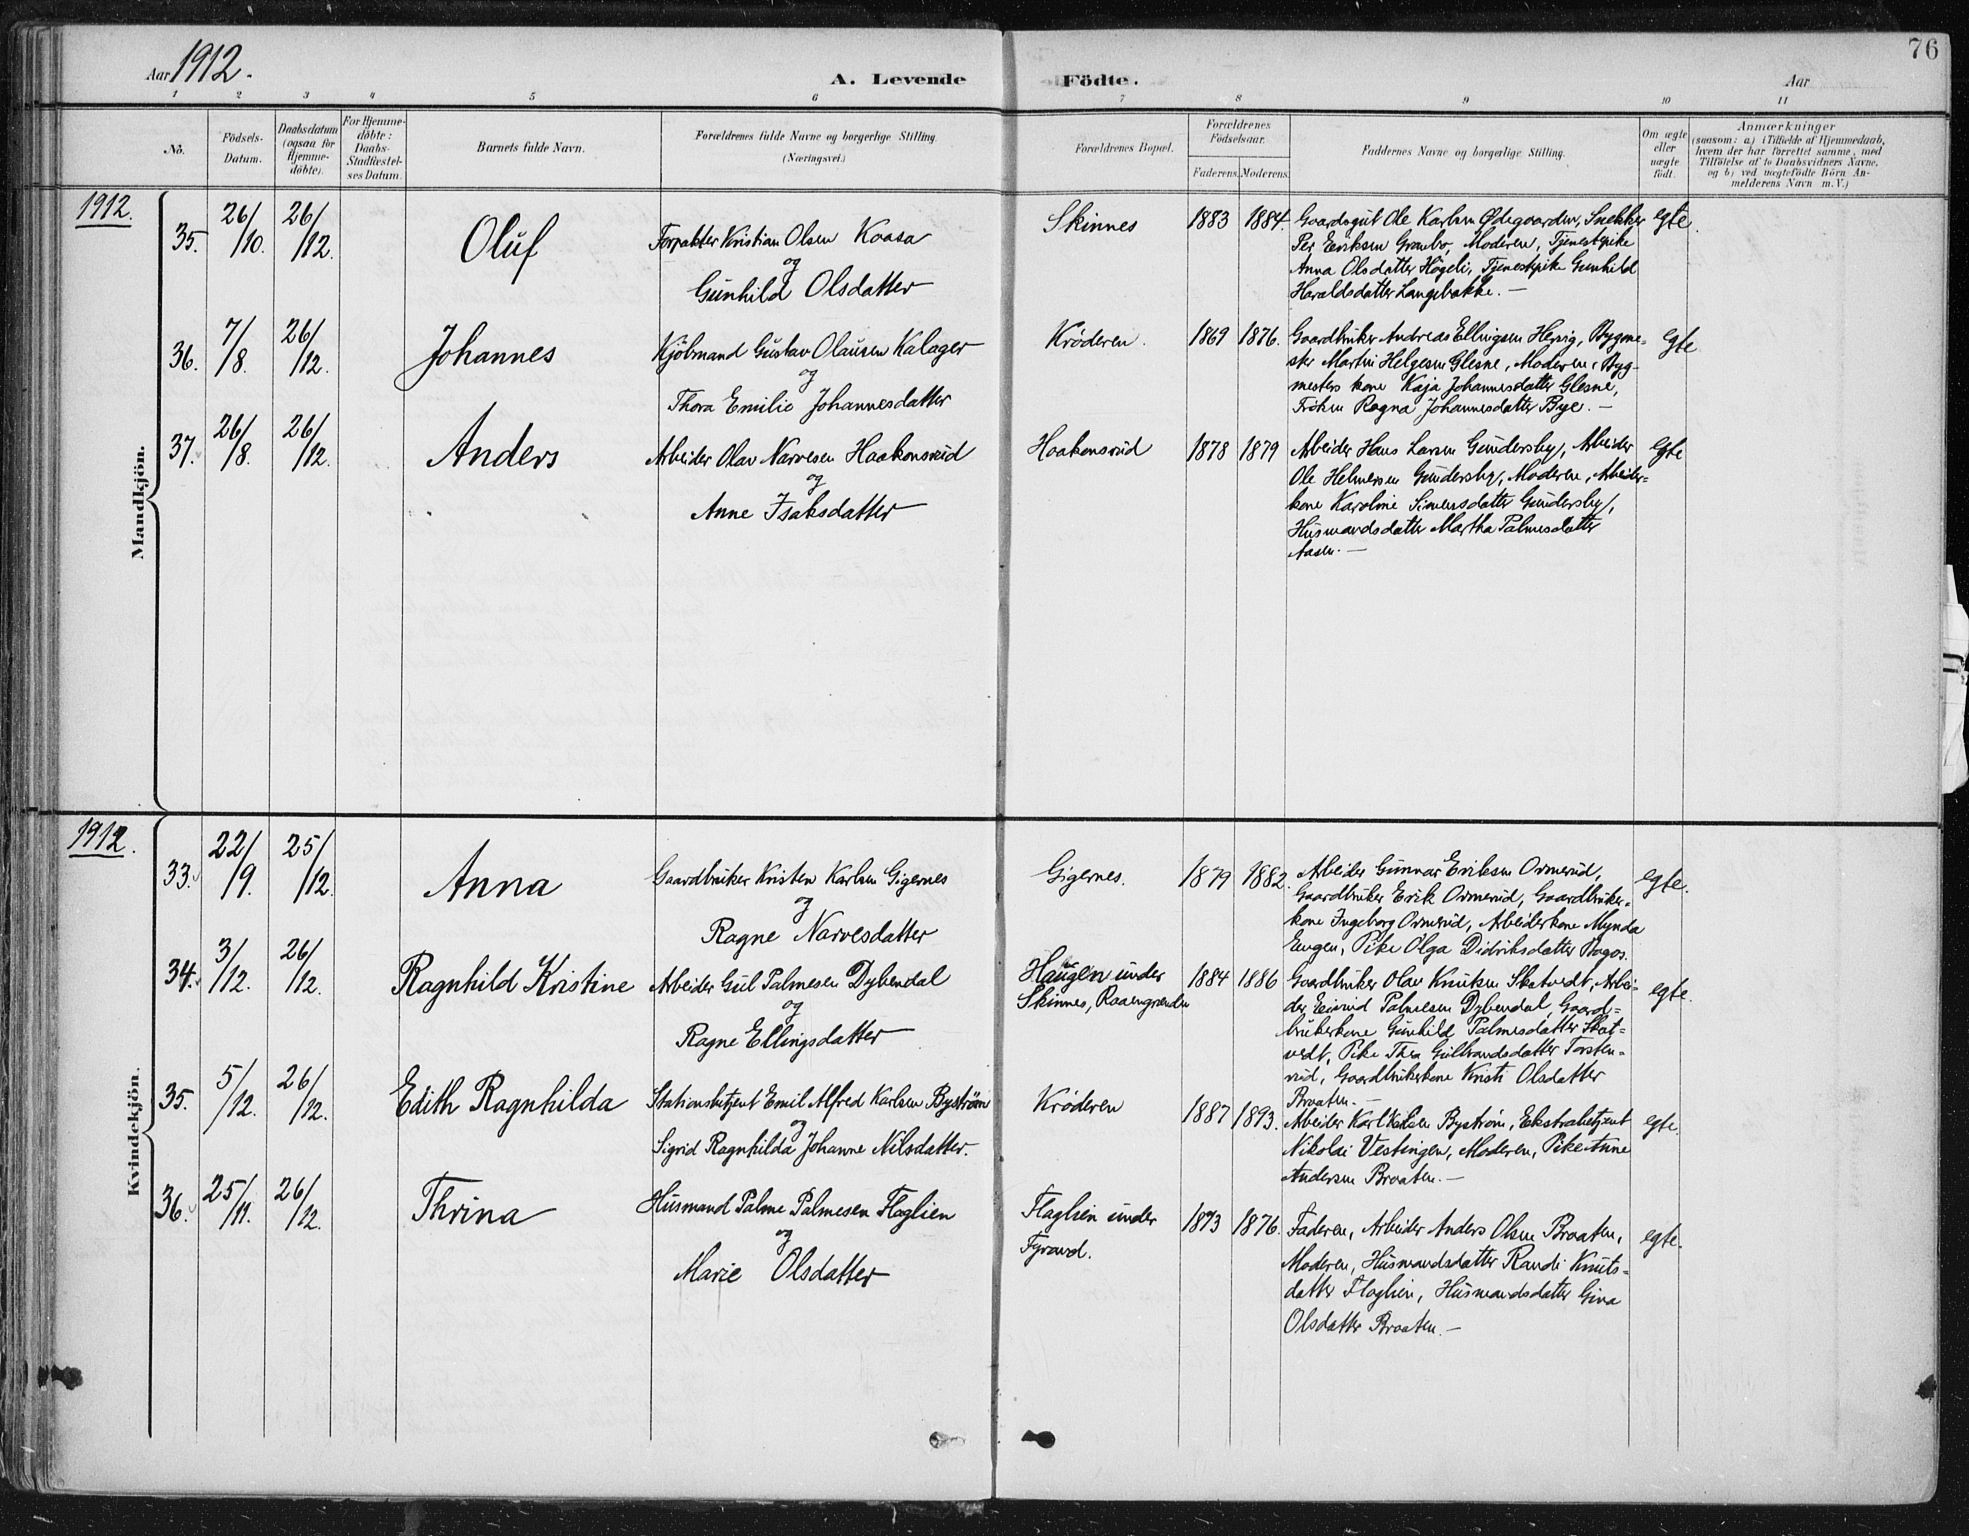 76
Aar 1912.
A. Levende Födte.
Aar
1 2 3 4 5 6 7 8 9 10 11
No.
Födsels-
Datum.
Daabsdatum
(ogsaa for
Hjemme-
döbte).
For Hjemme-
döbte:
Daabs-
Stadfæstel-
ses Datum.
Barnets fulde Navn.
Forældrenes fulde Navne og borgerlige Stilling.
(Næringsvei.)
Forældrenes Bopæl.
Forældrenes
Födselsaar.
Faderens. Moderens.
Faddernes Navne og borgerlige Stilling.
Om ægte
eller
uægte
født.
Anmærkninger
(saasom: a) i Tilfælde af Hjemmedaab,
hvem der har forrettet samme, med
Tilföielse af to Daabsvidners Navne,
og b) ved uægtefödte Börn An-
melderens Navn m. V.)
Mandkjön.
1912.
35.
26/10.
26/12.
Oluf
Forpakter Kristian Olsen Kaasa
og
Gunhild Olsdatter
Skinnes
1883 1884.
Gaardsgut Ole Karlsen Ødegaarden, Snekker
Per Eriksen Granbo, Moderen, Tjenestepike
Anna Olsdatter Högeli, Tjenestepike Gunhild
Haraldsdatter Langebakke. —
egte.
36.
7/8.
26/12.
Johannes
Kjöbmand Gustav Olausen Kalager
og
Thora Emilie Johannesdatter
Krøderen.
1869 1876.
Gaardbruker Andreas Ellingsen Hesig, Bygme-
ster Martin Helgesen Glesne, Moderen, Byg-
mesters kone Kaja Johannesdatter Glesne,
Fröken Ragna Johannesdatter Bye. —
egte
37.
26/8.
26/12.
Anders
Arbeider Olav Narvesen Haakonsrud
og
Anne Isaksdatter
Haakonsrud
1878 1879
Arbeider Hans Larsen Gundersby, Arbeider
Ole Helmersen Gundersby, Moderen, Arbeider-
kone Karoline Simensdatter Gundersby,
Husmandsdatter Martha Palmesdatter
Aasen. —
egte
Kvindekjön.
1912.
33.
22/9.
25/12.
Anna
Gaardbruker Kristen Karlsen Gigernes
og
Ragne Narvesdatter
Gigernes.
1879 1882.
Arbeider Gunnar Eriksen Ormerud,
Gaardbruker Erik Ormerud, Gaardbruker-
kone Ingeborg Ormerud, Arbeiderkone Mynda
Engen, Pike Olga Didriksdatter
egte.
34.
3/12.
26/12.
Ragnhild Kristine
Arbeider Gul Palmesen Dybendal
og
Ragne Ellingsdatter
Haugen under
Skinnes, Raaengrenden
1884 1886
Gaardbruker Olav Knutsen Skatvedt, Arbei-
der Eivind Palmesen Dybendal, Gaard-
brukerkone Gunhild Palmesdatter Skat-
vedt, Pike Thea Gulbrandsdatter Torsten-
rud, Gaardbrukerkone Kristi Olsdatter
Braaten. —
egte.
35.
5/12.
26/12.
Edith Ragnhilda
Stationsbetjent Emil Alfred Karlsen Byström
og
Sigrid Ragnhilda Johanne Nilsdatter.
Krøderen
1887 1893.
Arbeider Karl Karlsen Byström, Ekstrabetjent
Nikolai Vestingen, Moderen, Pike Anne
Andersen Braaten. —
egte.
36.
25/11.
26/12.
Thrina
Husmand Palme Palmesen Flaglien
og
Marie Olsdatter
Flaglien under
Fyrand.
1873 1876.
Faderen, Arbeider Anders Olsen Braaten,
Moderen, Husmandsdatter Randi Knuts-
datter Flaglien, Husmandsdatter Gina
Olsdatter Braaten. —
egte.